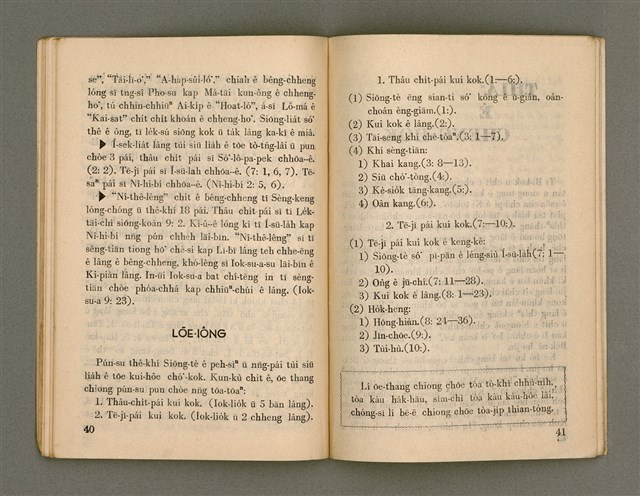 seⁿ, “Tāi-lī-o͘,” “A-hap-sûi-ló͘,” chiah ê bêng-chheng
lóng sī tng-sî Pho-su kap Má-tāi kun-ông ê chheng-
ho͘, tú chhin-chhiūⁿ Ai-ki̍p ê “Hoat-ló͘”, á-sī Lô-má ê
“Kai-sat” chit chi̍t khoán ê chheng-ho͘. Siōng-lia̍t só͘
thê ê ông, tī le̍k-sú siōng kok ū ta̍k lâng ka-kī ê miâ.
▶ Í-sek-lia̍t lâng túi siū lia̍h ê tōe tò-tńg-lâi ū pun
chòe 3 pái, thâu chi̍t pái sī So͘-lô-pa-pek chhōa-ê.
(2: 2). Tē-jī pái sī Í-sū-lah chhōa-ê. (7: 1, 6, 7). Tē-
saⁿ pái sī Nî-hi-bí chhōa-ê. (Nî-hi-bí 2: 5, 6).
▶ “Nî-thê-lêng” chit ê bêng-chheng tī Sèng-keng
lóng-chóng ū thê-khí 18 pái. Thâu chi̍t-pái sī tī Le̍k-
tāi-chì siōng-koàn 9: 2. Kî-û-ê lóng kì tī Í-sū-lah kap
Nî-hi-bí nn̄g pún chheh lāi-bīn. “Nî-thê-lêng” sī tī
sèng-tiān tiong hō͘ chè-si kap Lī-bī lâng teh chhe-ēng
ê lâng ê bêng-chheng, khó-lêng sī Iok-su-a-su lāi-bīn ê
Ki-piàn lâng. In-ūi Iok-su-a bat chí-tēng in tī sèng-
tiān chòe phòa-chhâ kap chhiūⁿ-chúi ê lâng. (Iok-
su-a 9: 23).
LŌE-IÔNG
Pún-su thê-khí Siōng-tè ê peh-sìⁿ ū nn̄g-pái túi siū
lia̍h ê tōe kui-hôe chó͘-kok. Kun-kù chit ê, ōe thang
chiong pún-su pun chòe nn̄g tōa-tōaⁿ:
1. Thâu-chi̍t-pái kui kok. (Iok-lio̍k ū 5 bān lâng).
2. Tē-jī-pái kui kok. (Iok-lio̍k ū 2 chheng lâng).
40
1. Thâu chi̍t-pái kui kok.(1:—6:).
(1) Siōng-tè èng sian-ti só͘ kóng ê ū-giân, oân-
choân èng-giām.(1:).
(2) Kui kok ê lâng.(2:).
(3) Tāi-seng khí chè-tôaⁿ.(3: 1—7).
(4) Khí sèng-tiān:
1) Khai kang.(3: 8—13).
2) Siū chó͘-tòng.(4:).
3) Kè-sio̍k tāng-kang.(5:).
4) Oân kang.(6:).
2. Tē-jī pái kui kok.(7:—10:).
(1) Tē-jī pái kui kok ê keng-kè:
1) Siōng-tè só͘ pī-pān ê léng-siù Í-sū-lah(7: 1—
10).
2) Ông ê jū-chí.(7: 11—28).
3) Kui kok ê lâng.(8: 1—23).
(2) Ho̍k-heng:
1) Hông-hiàn.(8: 24—36).
2) Jīn-chōe.(9:).
3) Túi-hù.(10:).
Lí ōe-thang chiong chōe tòa tò-khì chhù-nih,
tòa kàu ha̍k-hāu, sīm-chì tòa kàu kàu-hōe lāi,
chóng-sī lí bē-ē chiong chōe tòa-ji̍p thian-tông.
41